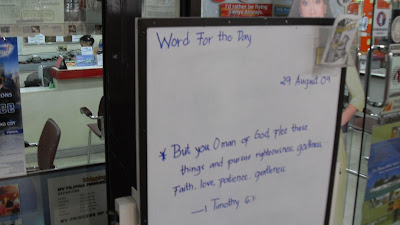 I'd rather be flying
Word For the Day
29 August 09
* But you O man of God, flee these
things and pursue righteousness, godliness,
Faith, love, patience, gentleness
— 1 Timothy 6:11